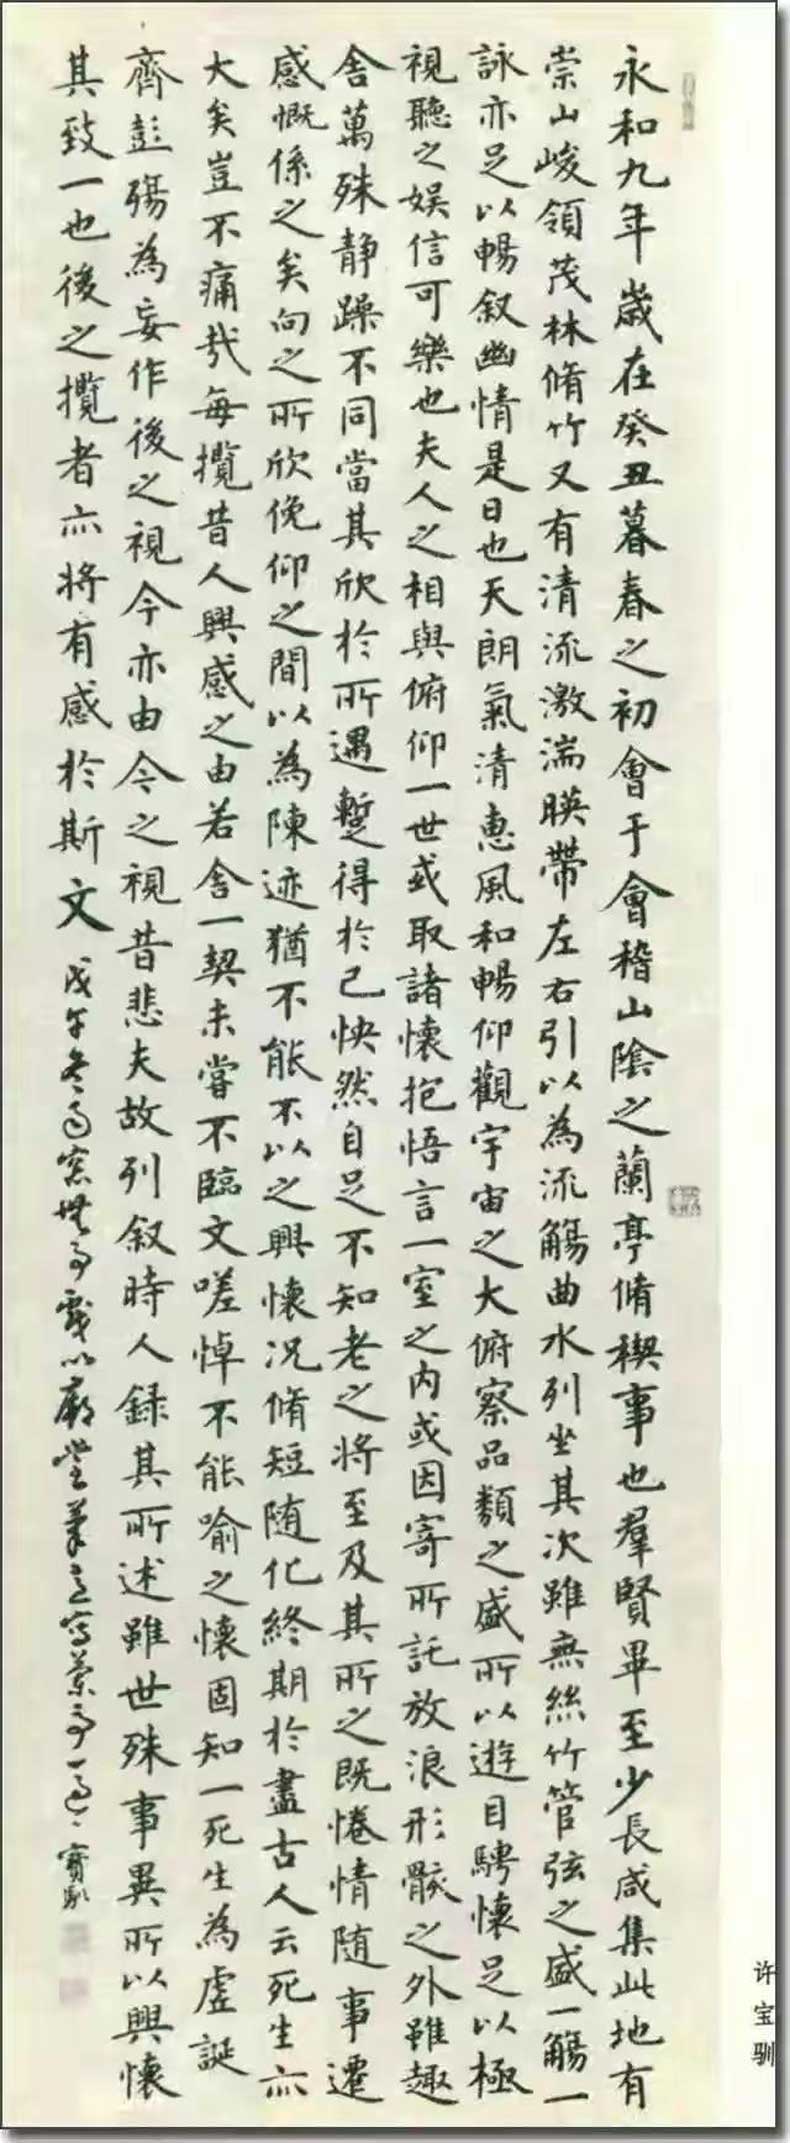 永和九年歲在癸丑暮春之初會于會稽山陰之蘭亭脩稧事也羣賢畢至少長咸集此地有
崇山峻領茂林脩竹又有清流激湍暎帶左右引以為流觴曲水列坐其次雖無絲竹管弦之盛一觴一
詠亦足以暢叙幽情是日也天朗氣清惠風和暢仰觀宇宙之大俯察品類之盛所以遊目騁懷足以極
視聽之娛信可樂也夫人之相與俯仰一世或取諸懷抱悟言一室之內或因寄所託放浪形骸之外雖趣
舍萬殊静躁不同當其欣於所遇蹔得於己怏然自足不知老之將至及其所之既惓情随事遷
感慨係之矣向之所欣俛仰之間以為陳迹猶不能不以之興懷况脩短随化終期於盡古人云死生亦
大矣豈不痛哉每攬昔人興感之由若合一契未嘗不臨文嗟悼不能喻之懷固知一死生為虛誕
齊彭殤為妄作後之視今亦由今之視昔悲夫故列叙時人錄其所述雖世殊事異所以興懷
其致一也後之攬者亦將有感於斯文 戊午冬雨窓無事戲以廟堂筆意寫蘭亭一過 寶馴
许宝驯